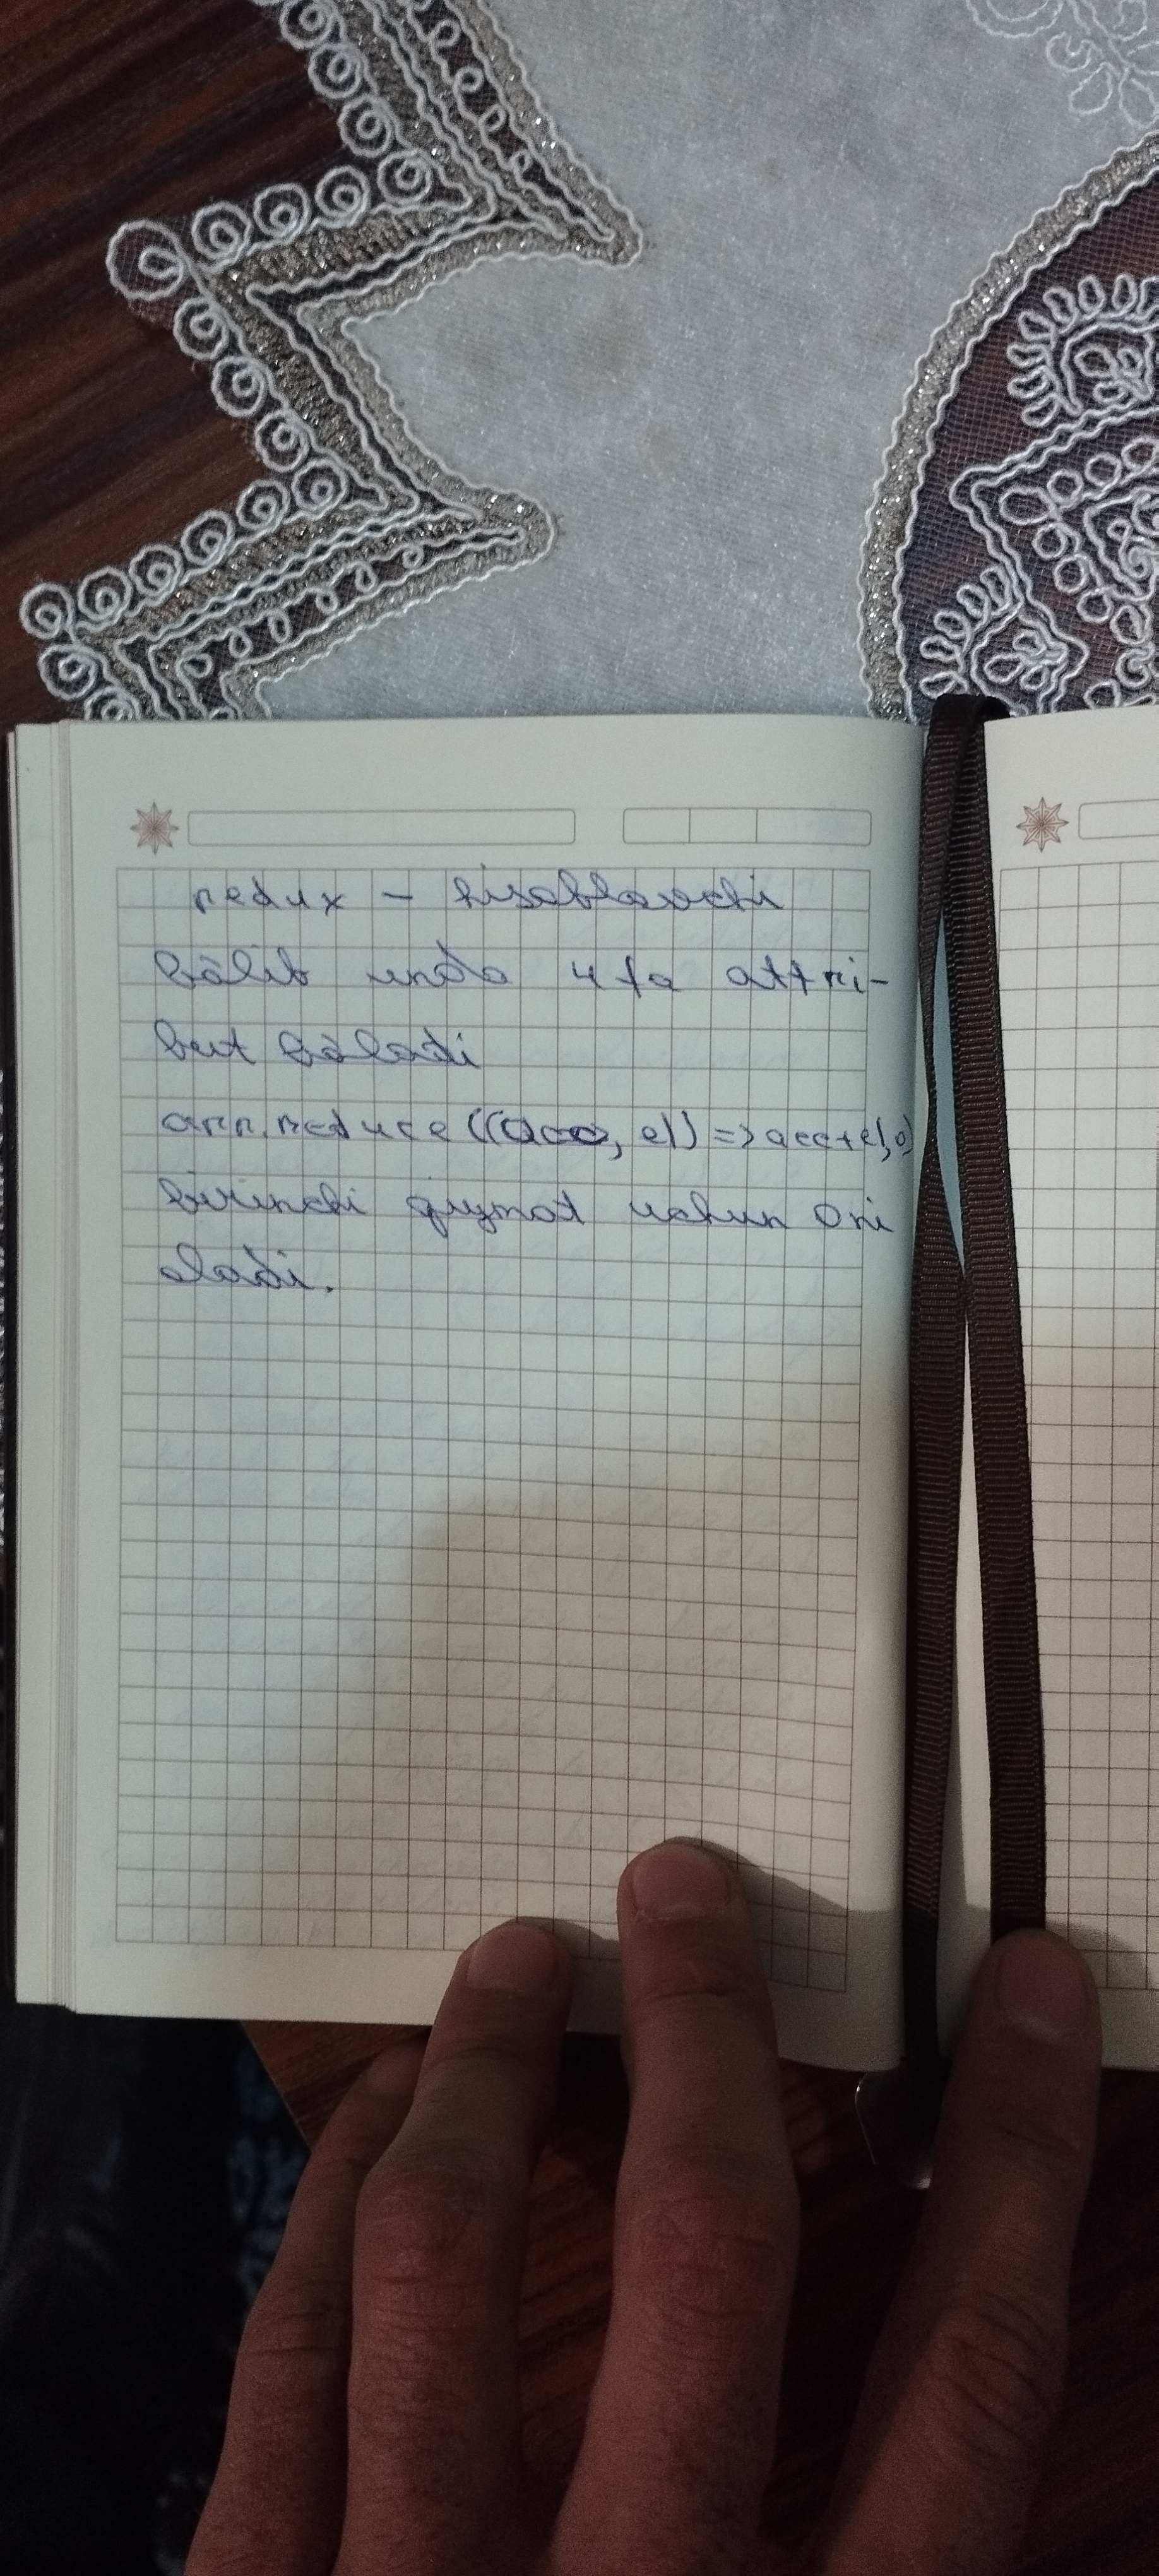 redux - hisoblovchi
bõlib unda 4 ta attri-
but bõladi
arr.reduce((acc, el) => acc+el,0)
birinchi qiymat uchun 0 ni
oladi.